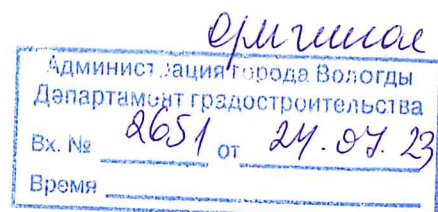 оригинал
Администрация города Вологды
Департамент градостроительства
Вх. № 2651 от 24.07.23
Время